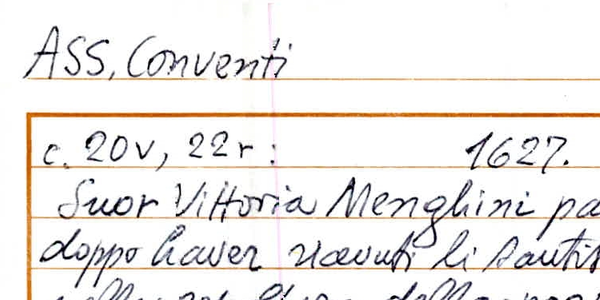 ASS, Conventi
c. 20v, 22r: 1627.
Suor Vittoria Menghini pa
doppo haver ricevuti li santis